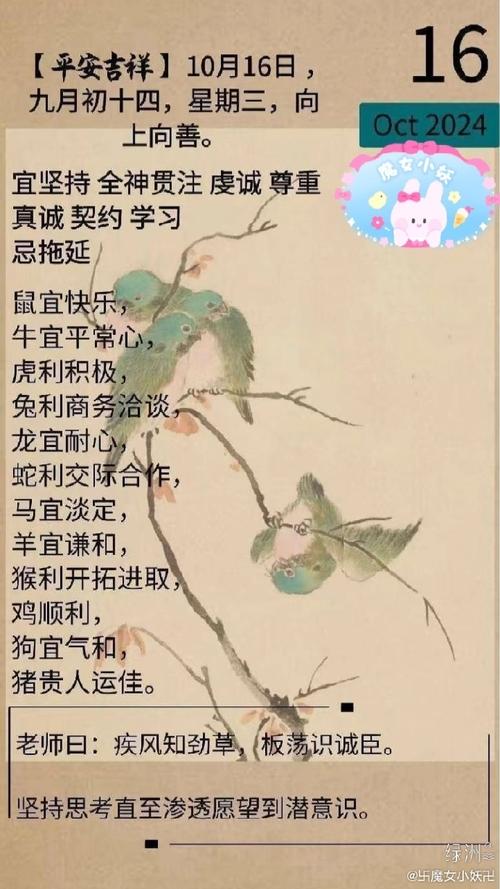 16
Oct 2024
魔女小妖
【平安吉祥】10月16日，
九月初十四，星期三，向
上向善。
宜坚持 全神贯注 虔诚 尊重
真诚 契约 学习
忌拖延
鼠宜快乐，
牛宜平常心，
虎利积极，
兔利商务洽谈，
龙宜耐心，
蛇利交际合作，
马宜淡定，
羊宜谦和，
猴利开拓进取，
鸡顺利，
狗宜气和，
猪贵人运佳。
老师曰：疾风知劲草，板荡识诚臣。
坚持思考直至渗透愿望到潜意识。
绿洲
@卐魔女小妖卍